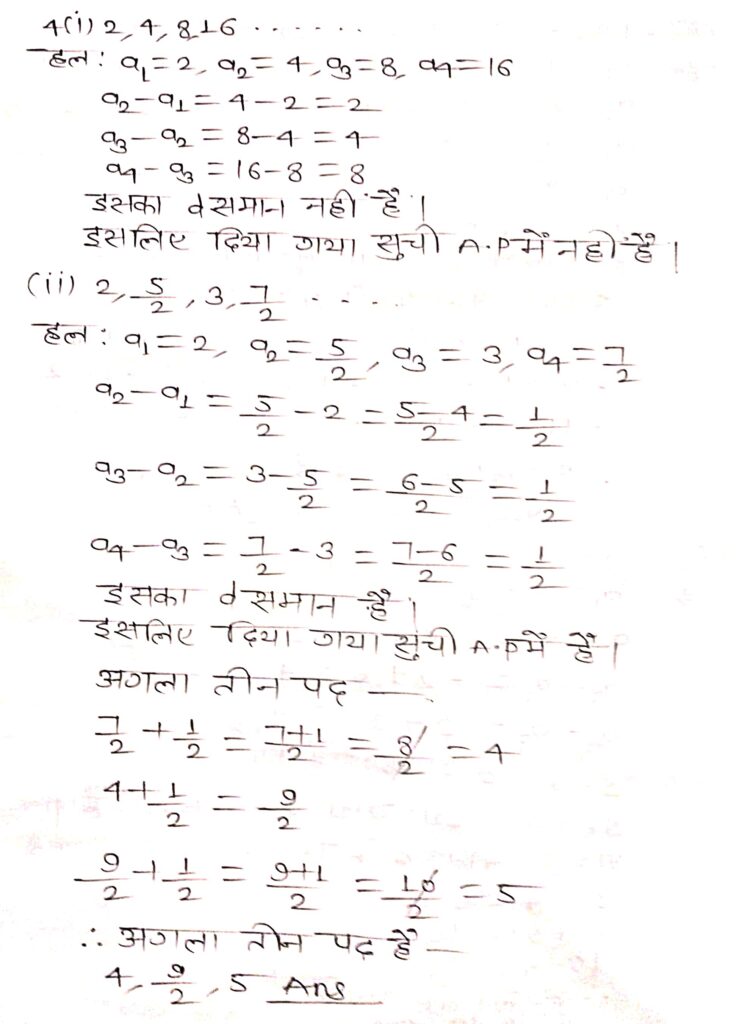 4(i) 2, 4, 8, 16 ......
हल: a₁=2, a₂=4, a₃=8, a4=16
a₂-a₁ = 4-2 = 2
a₃-a₂ = 8-4 = 4
a4-a₃ = 16-8 = 8
इसका d समान नही हैं।
इसलिए दिया गया सुची A.P में नही हैं।
(ii) 2, 5/2, 3, 7/2 ....
हल: a₁=2, a₂=5/2, a₃=3, a4=7/2
a₂-a₁ = 5/2 - 2 = 5-4/2 = 1/2
a₃-a₂ = 3-5/2 = 6-5/2 = 1/2
a4-a₃ = 7/2 - 3 = 7-6/2 = 1/2
इसका d समान हैं।
इसलिए दिया गया सुची A.P में हैं।
अगला तीन पद —
7/2 + 1/2 = 7+1/2 = 8/2 = 4
4+1/2 = 9/2
9/2 + 1/2 = 9+1/2 = 10/2 = 5
∴ अगला तीन पद हैं —
4, 9/2, 5 Ans